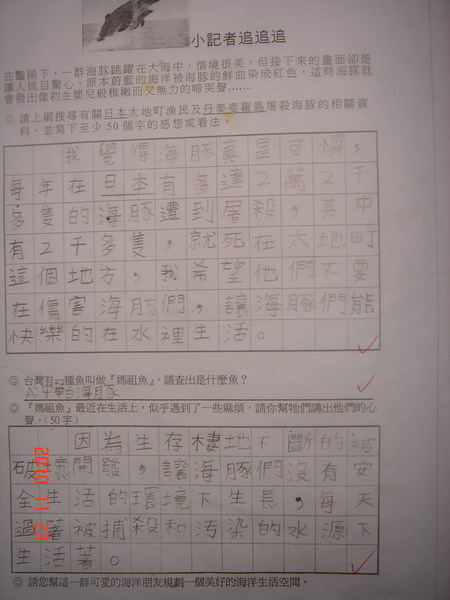 小記者追追追
在豔陽下，一群海豚跳躍在大海中，情境很美，但接下來的畫面卻是
讓人怵目驚心，原本蔚藍的海洋被海豚的鮮血染成紅色，這時海豚就
會發出像初生嬰兒般稚嫩而又無力的啼哭聲……
◎ 請上網搜尋有關日本太地町漁民及丹麥斐羅島屠殺海豚的相關資
料，並寫下至少50個字的感想或看法。
我覺得海豚真是可憐，
每年在日本有多達2萬2千
多隻的海豚遭到屠殺，其中
有2千多隻，就死在太地町
這個地方，我希望他們不要
在傷害海豚們，讓海豚們能
快樂的在水裡生活。
◎ 台灣有一種魚叫做『媽祖魚』，請查出是什麼魚？
A:中華白海豚
◎ 『媽祖魚』最近在生活上，似乎遇到了一些麻煩，請你幫牠們講出他們的心
聲。(50字)
因為生存棲地不斷的被
破壞開發，讓海豚們沒有安
全生活的環境下生長，每天
過著被捕殺和污染的水源下
生活著。
◎ 請您幫這一群可愛的海洋朋友規劃一個美好的海洋生活空間。
2010 11 23